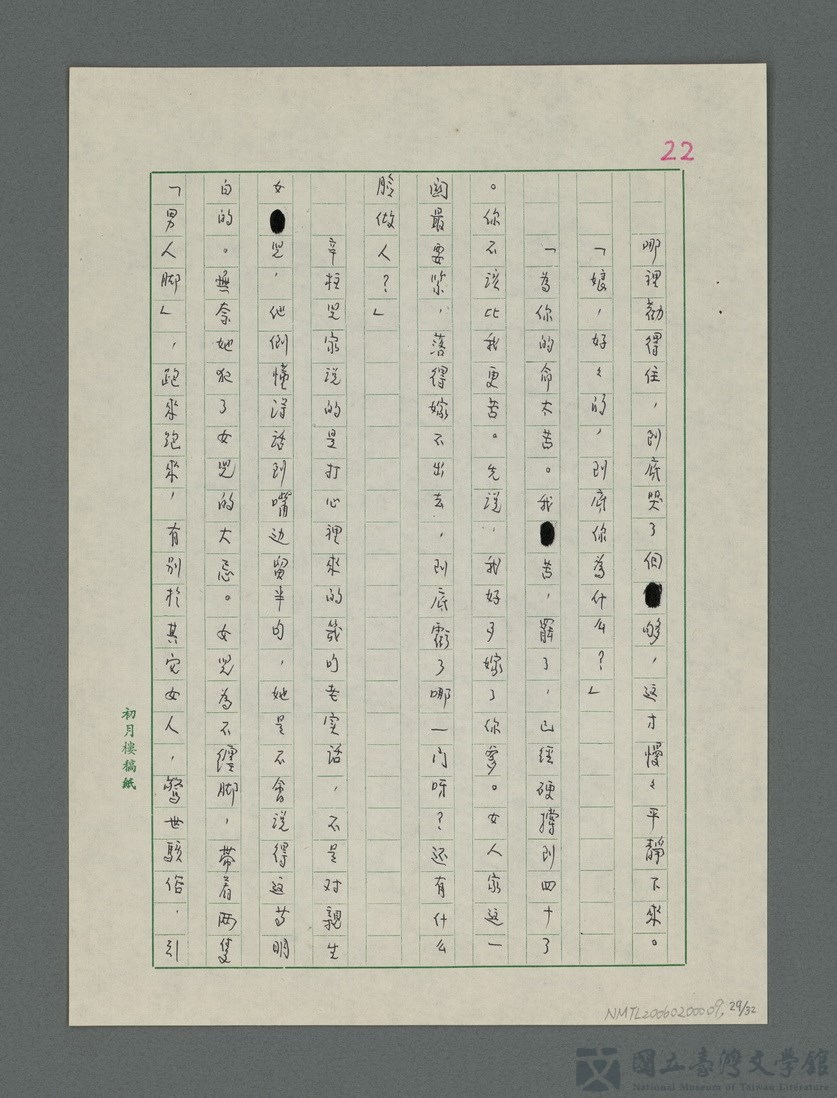 22
哪裡勸得住，到底哭了個够，这才慢々平靜下來。
「娘，好々的，到底你為什么？」
「為你的命太苦。我苦，罷了，已經硬撐到四十了
。你不該比我更苦。先說，我好歹嫁了你爹。女人家这一
関最要紧，落得嫁不出去，到底虧了哪一门呀？还有什么
臉做人？」
辛柱兒家说的是打心裡來的幾句老实話，不是对親生
女兒，他倒懂得話到嘴边留半句，她是不會说得这荨明
白的。無奈她犯了女兒的大忌。女兒為不纏脚，带着两隻
「男人脚」，跑來跑來，有別於其它女人，驚世駭俗，引
初月樓稿紙
NMTL20060200009, 29/32
國立臺灣文學館
National Museum of Taiwan Literature